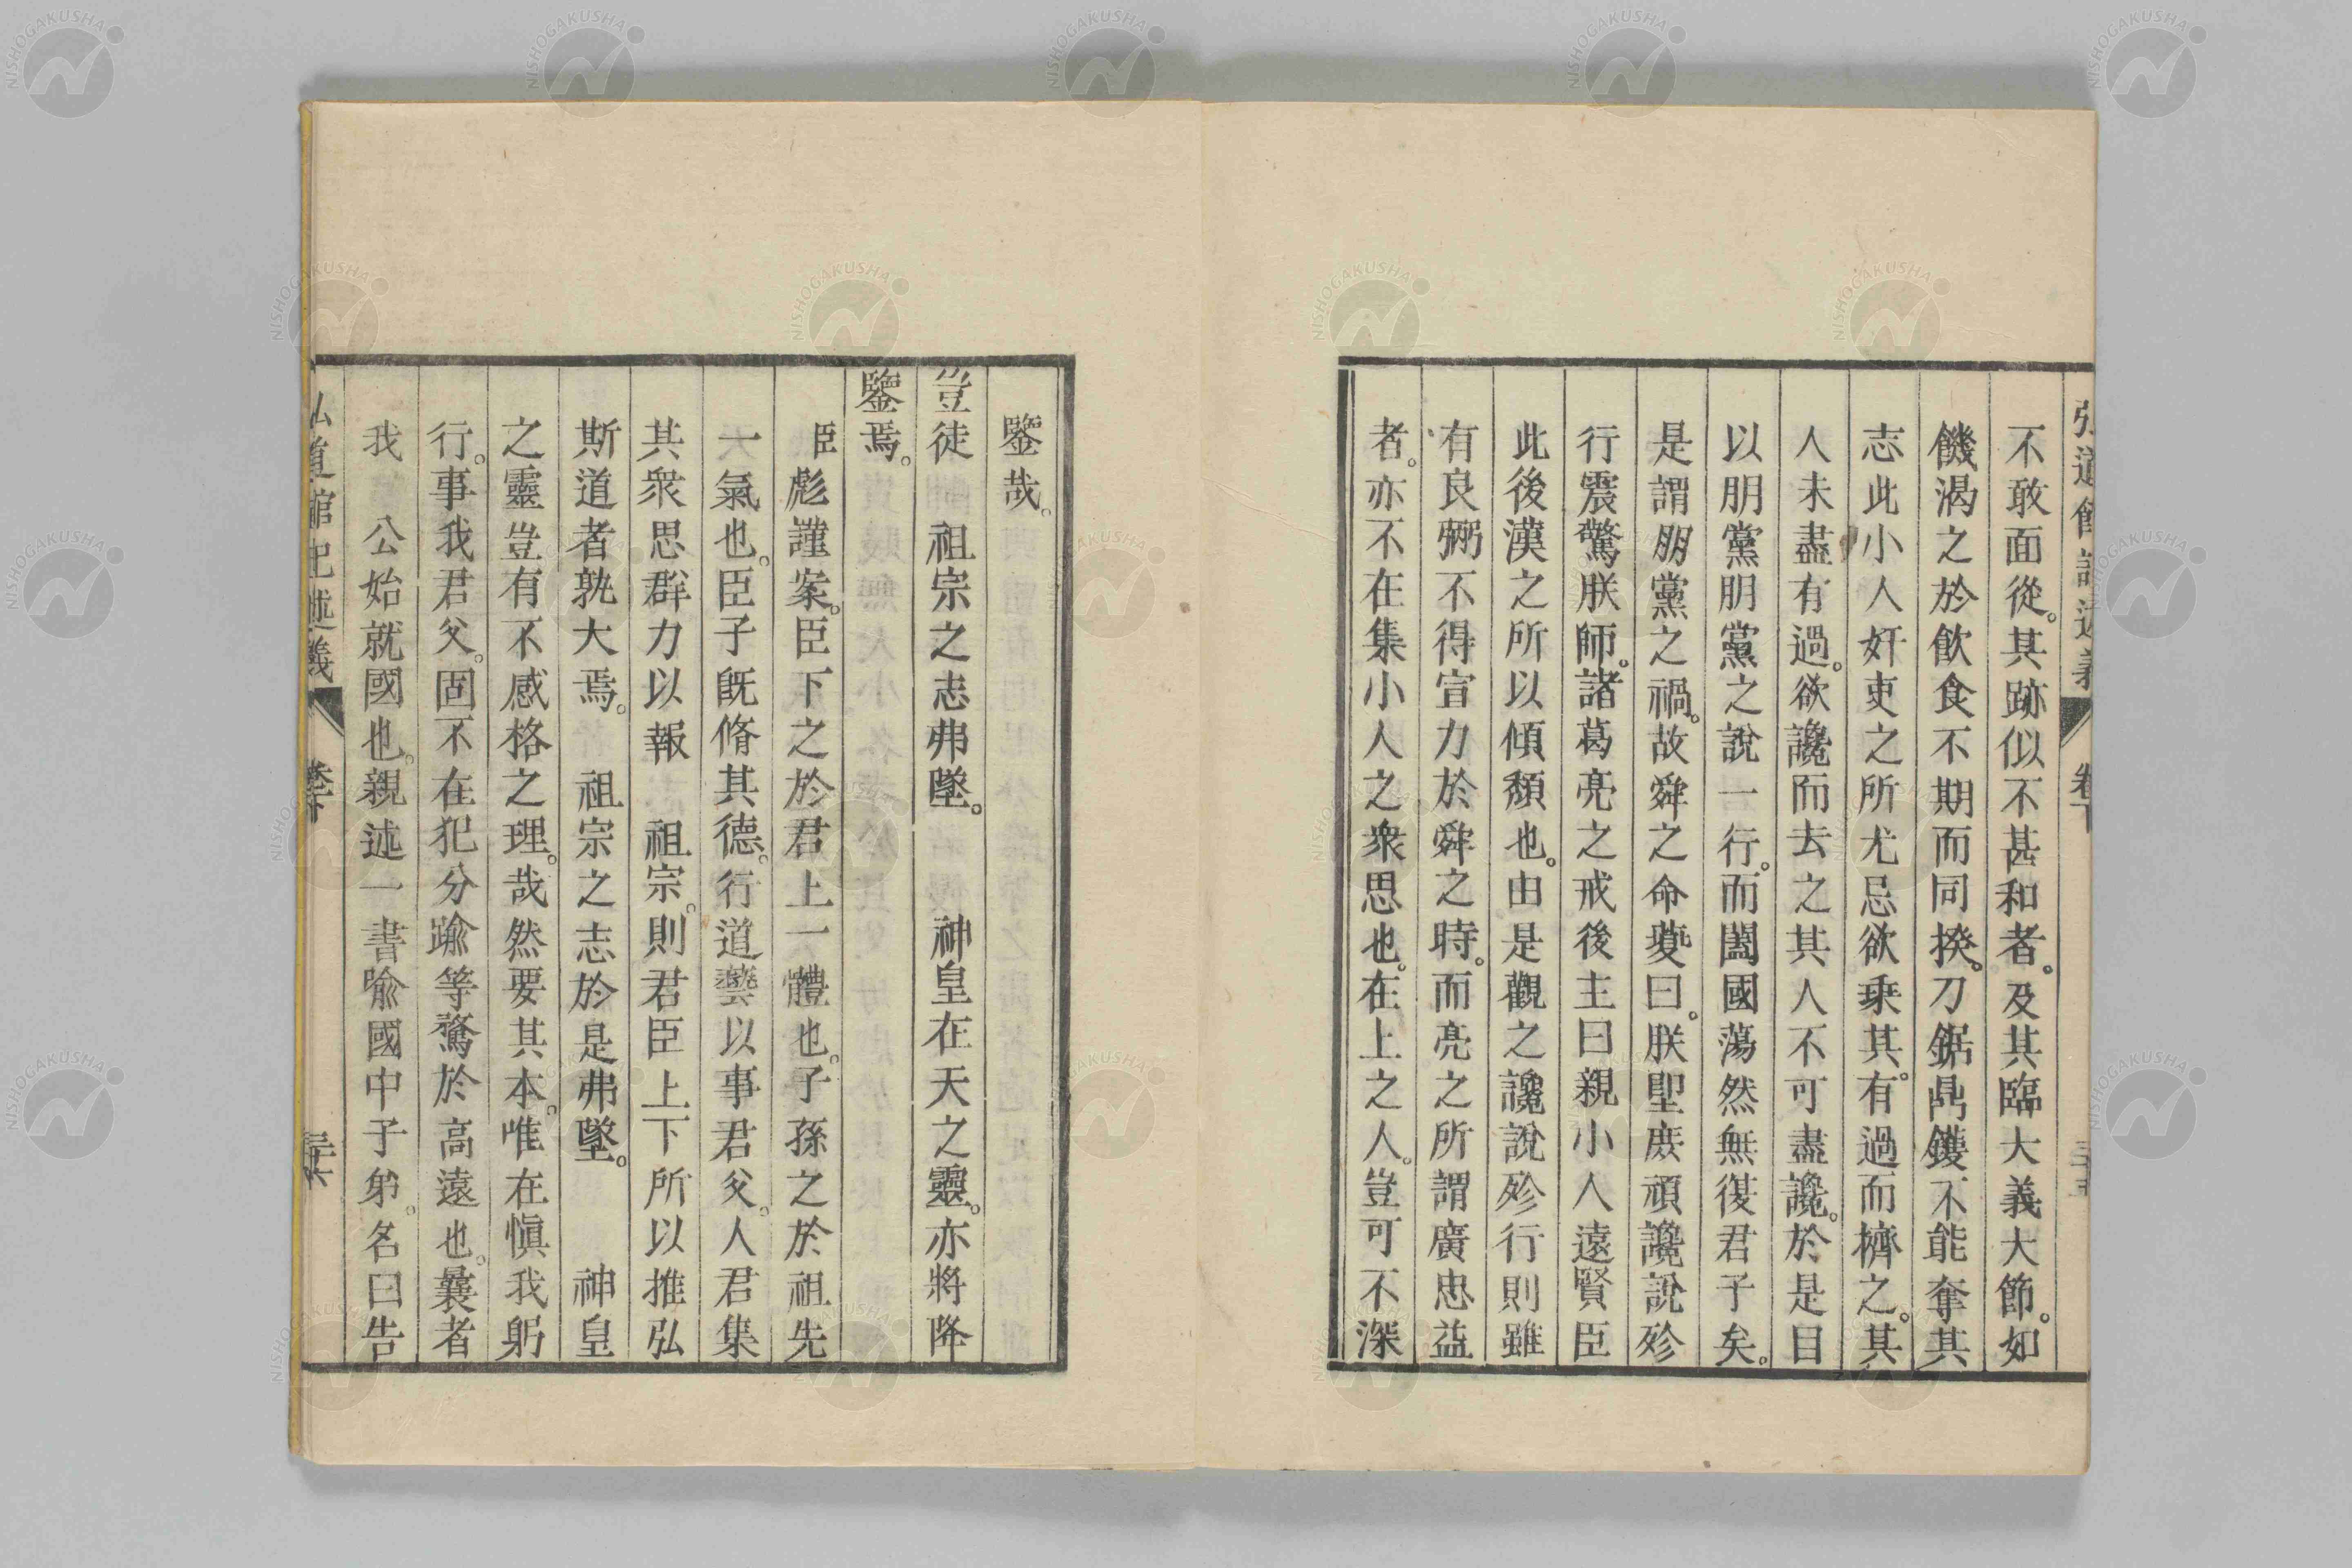 弘道館記述義 卷下 三十五
不敢面從。其跡似不甚和者。及其臨大義大節。如
饑渴之於飲食不期而同揆。刀鋸鼎鑊不能奪其
志此小人奸吏之所尤忌欲乗其。有過而擠之。其
人未盡有過。欲讒而去之其人不可盡讒。於是目
以朋黨朋黨之說一行。而闔國蕩然無復君子矣。
是謂朋黨之禍。故舜之命夔曰。朕聖庶頑讒說殄
行震驚朕師。諸葛亮之戒後主曰親小人遠賢臣
此後漢之所以傾頽也。由是觀之讒說殄行則雖
有良弼不得宣力於舜之時。而亮之所謂廣忠益
者。亦不在集小人之衆思也。在上之人。豈可不深
鑒哉。
豈徒 祖宗之志弗墜。 神皇在天之靈。亦將降
鑒焉。
臣彪謹案。臣下之於君上一體也。子孫之於祖先
一氣也。臣子既脩其德。行道藝以事君父。人君集
其衆思群力以報 祖宗。則君臣上下所以推弘
斯道者孰大焉。 祖宗之志於是弗墜。 神皇
之靈豈有不感格之理。哉然要其本。唯在愼我躬
行。事我君父。固不在犯分踰等騖於高遠也。曩者
我 公始就國也。親述一書喩國中子弟。名曰告
弘道館記述義 卷下 三十六
NISHOGAKUSHA